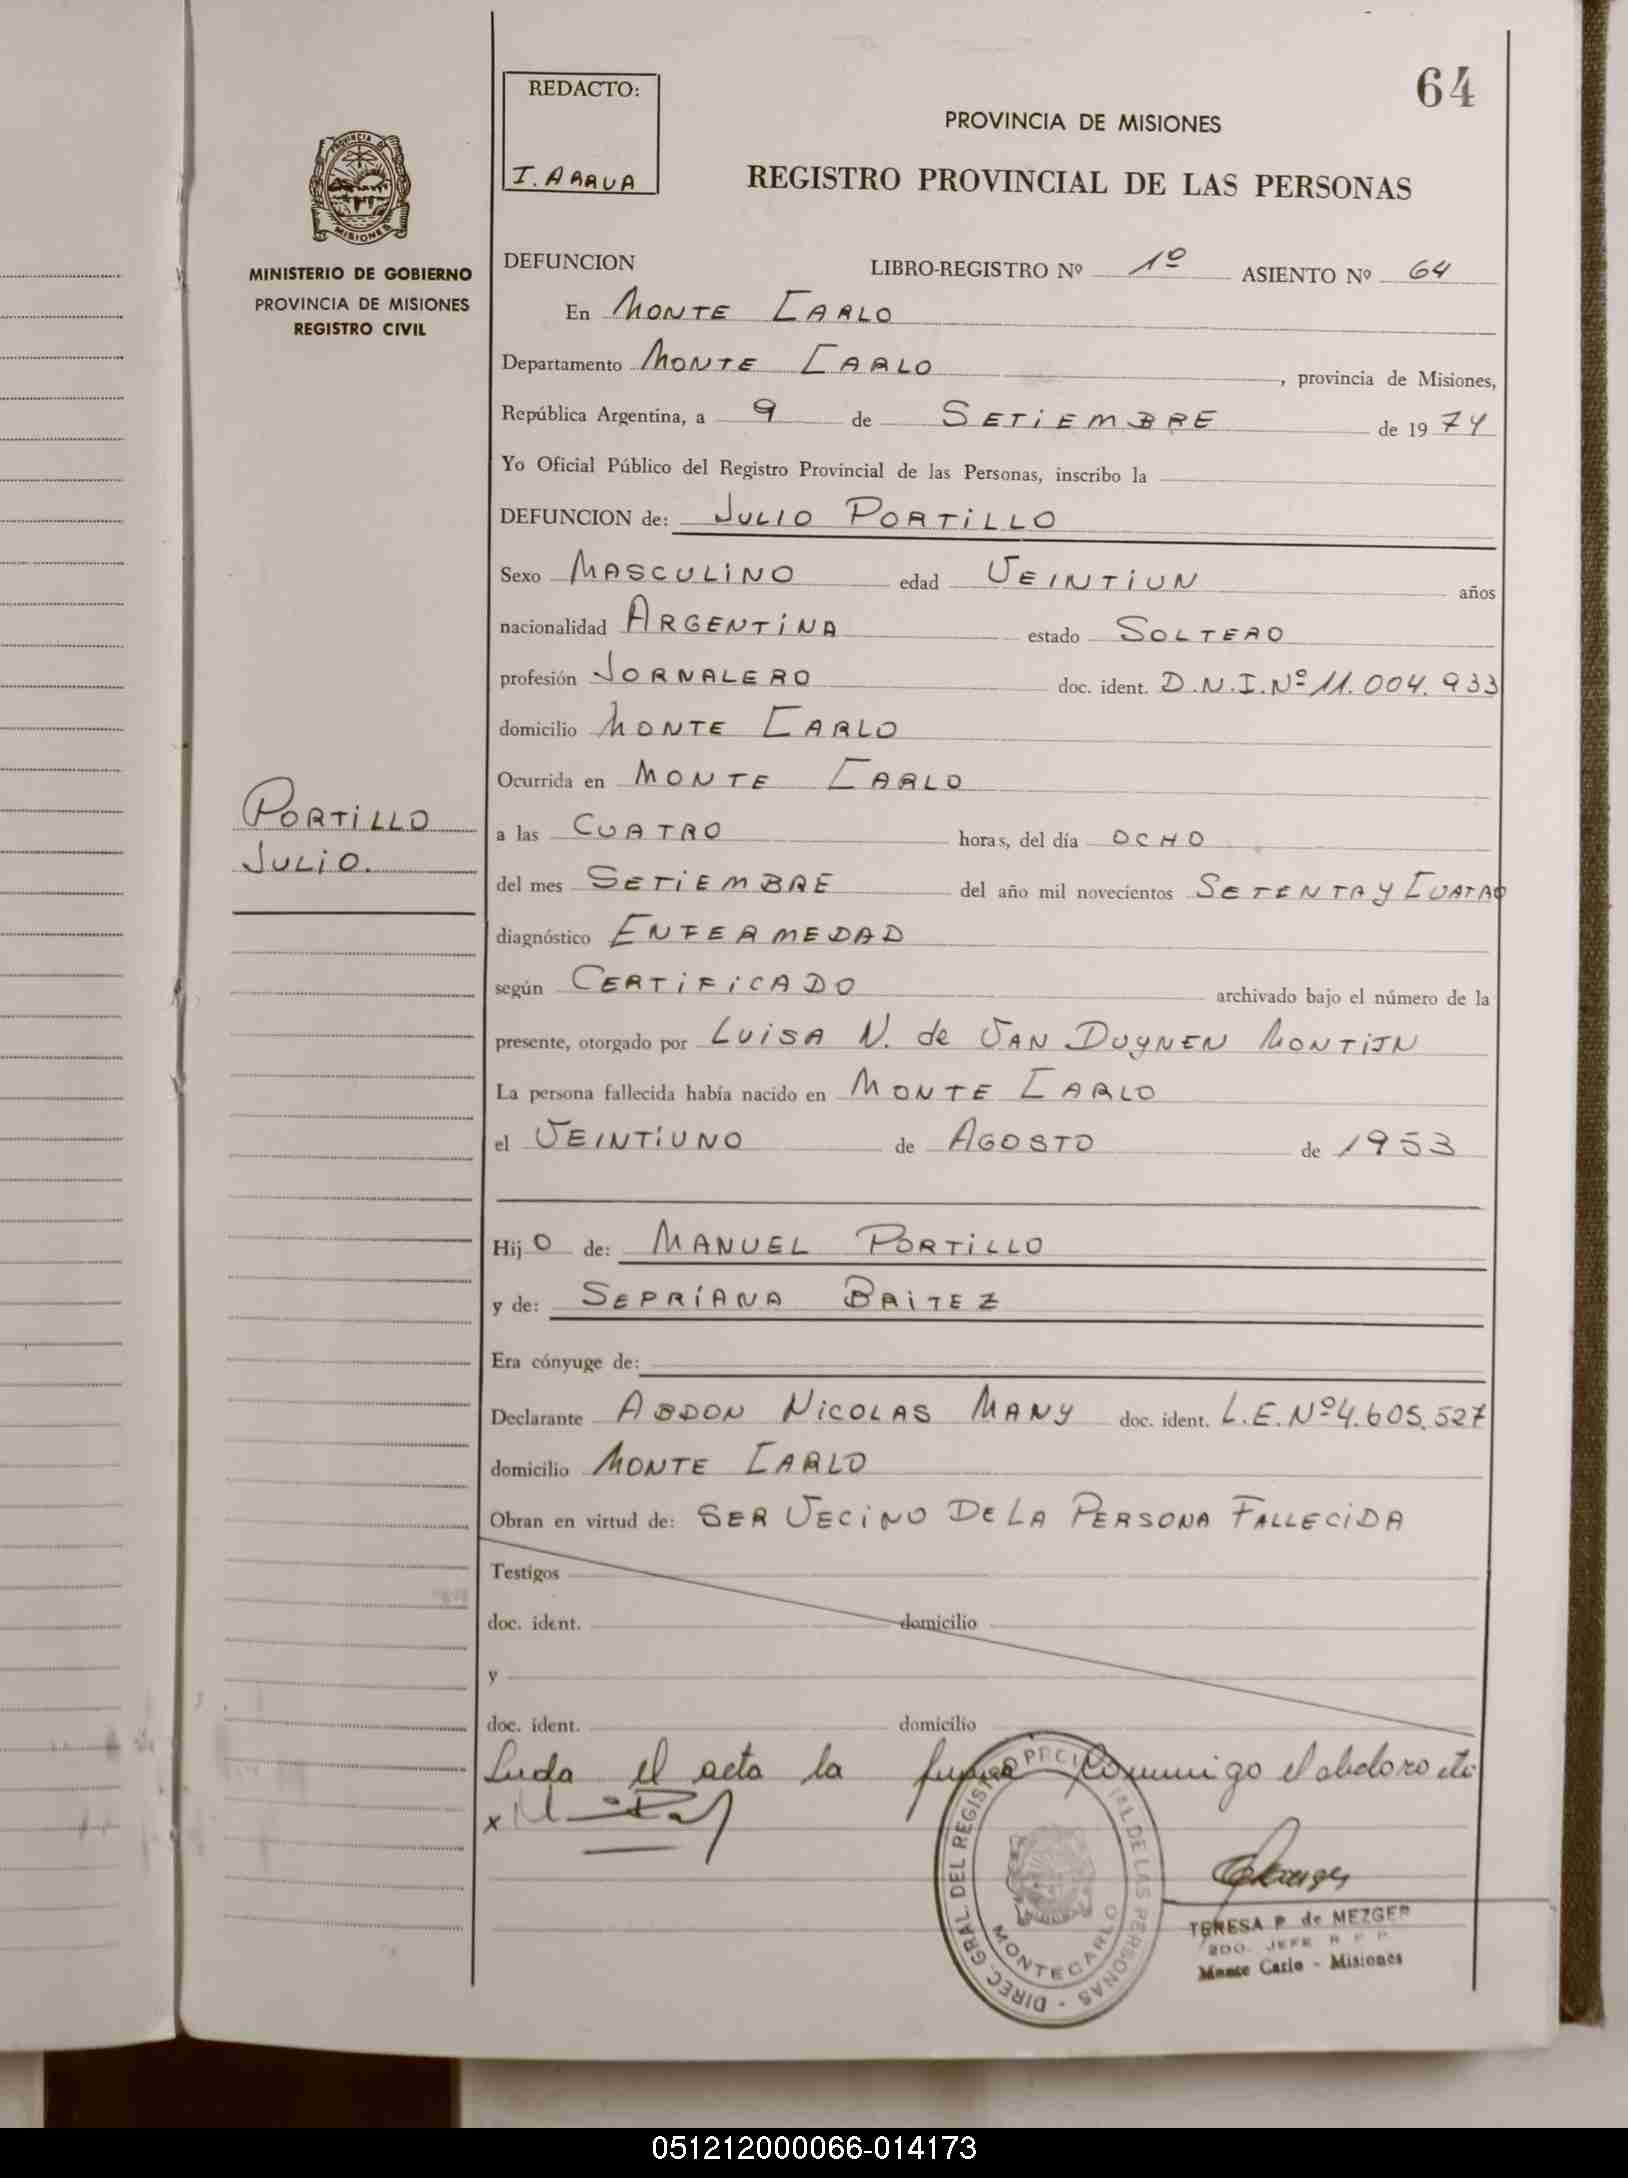 64
REDACTO:
I. ARRUA
PROVINCIA DE MISIONES
REGISTRO PROVINCIAL DE LAS PERSONAS
PROVINCIA DE
MISIONES
MINISTERIO DE GOBIERNO
PROVINCIA DE MISIONES
REGISTRO CIVIL
DEFUNCION LIBRO-REGISTRO Nº 1º ASIENTO Nº 64
En MONTE CARLO
Departamento MONTE CARLO, provincia de Misiones,
República Argentina, a 9 de SETIEMBRE de 1974
Yo Oficial Público del Registro Provincial de las Personas, inscribo la
DEFUNCION de: JULIO PORTILLO
Sexo MASCULINO edad VEINTIUN años
nacionalidad ARGENTINA estado SOLTERO
profesión JORNALERO doc. ident. D.N.I.Nº 11.004.933
domicilio MONTE CARLO
Ocurrida en MONTE CARLO
PORTILLO
JULIO.
a las CUATRO horas, del día OCHO
del mes SETIEMBRE del año mil novecientos SETENTA Y CUATRO
diagnóstico ENFERMEDAD
según CERTIFICADO archivado bajo el número de la
presente, otorgado por LUISA N. de VAN DUYNEN MONTIJN
La persona fallecida había nacido en MONTE CARLO
el VEINTIUNO de AGOSTO de 1953
Hijo de: MANUEL PORTILLO
y de: SEPRIANA BRITEZ
Era cónyuge de:
Declarante ABDON NICOLAS MANY doc. ident. L.E.Nº 4.605.527
domicilio MONTE CARLO
Obran en virtud de: SER VECINO DE LA PERSONA FALLECIDA
Testigos
doc. ident. domicilio
y
doc. ident. domicilio
Leida el acta la firma conmigo el
x
DIREC. GRAL DEL REGISTRO PROVINCIAL DE LAS PERSONAS -
MONTECARLO
TERESA P. de MEZGER
2DO. JEFE R P P
Monte Carlo - Misiones
051212000066-014173